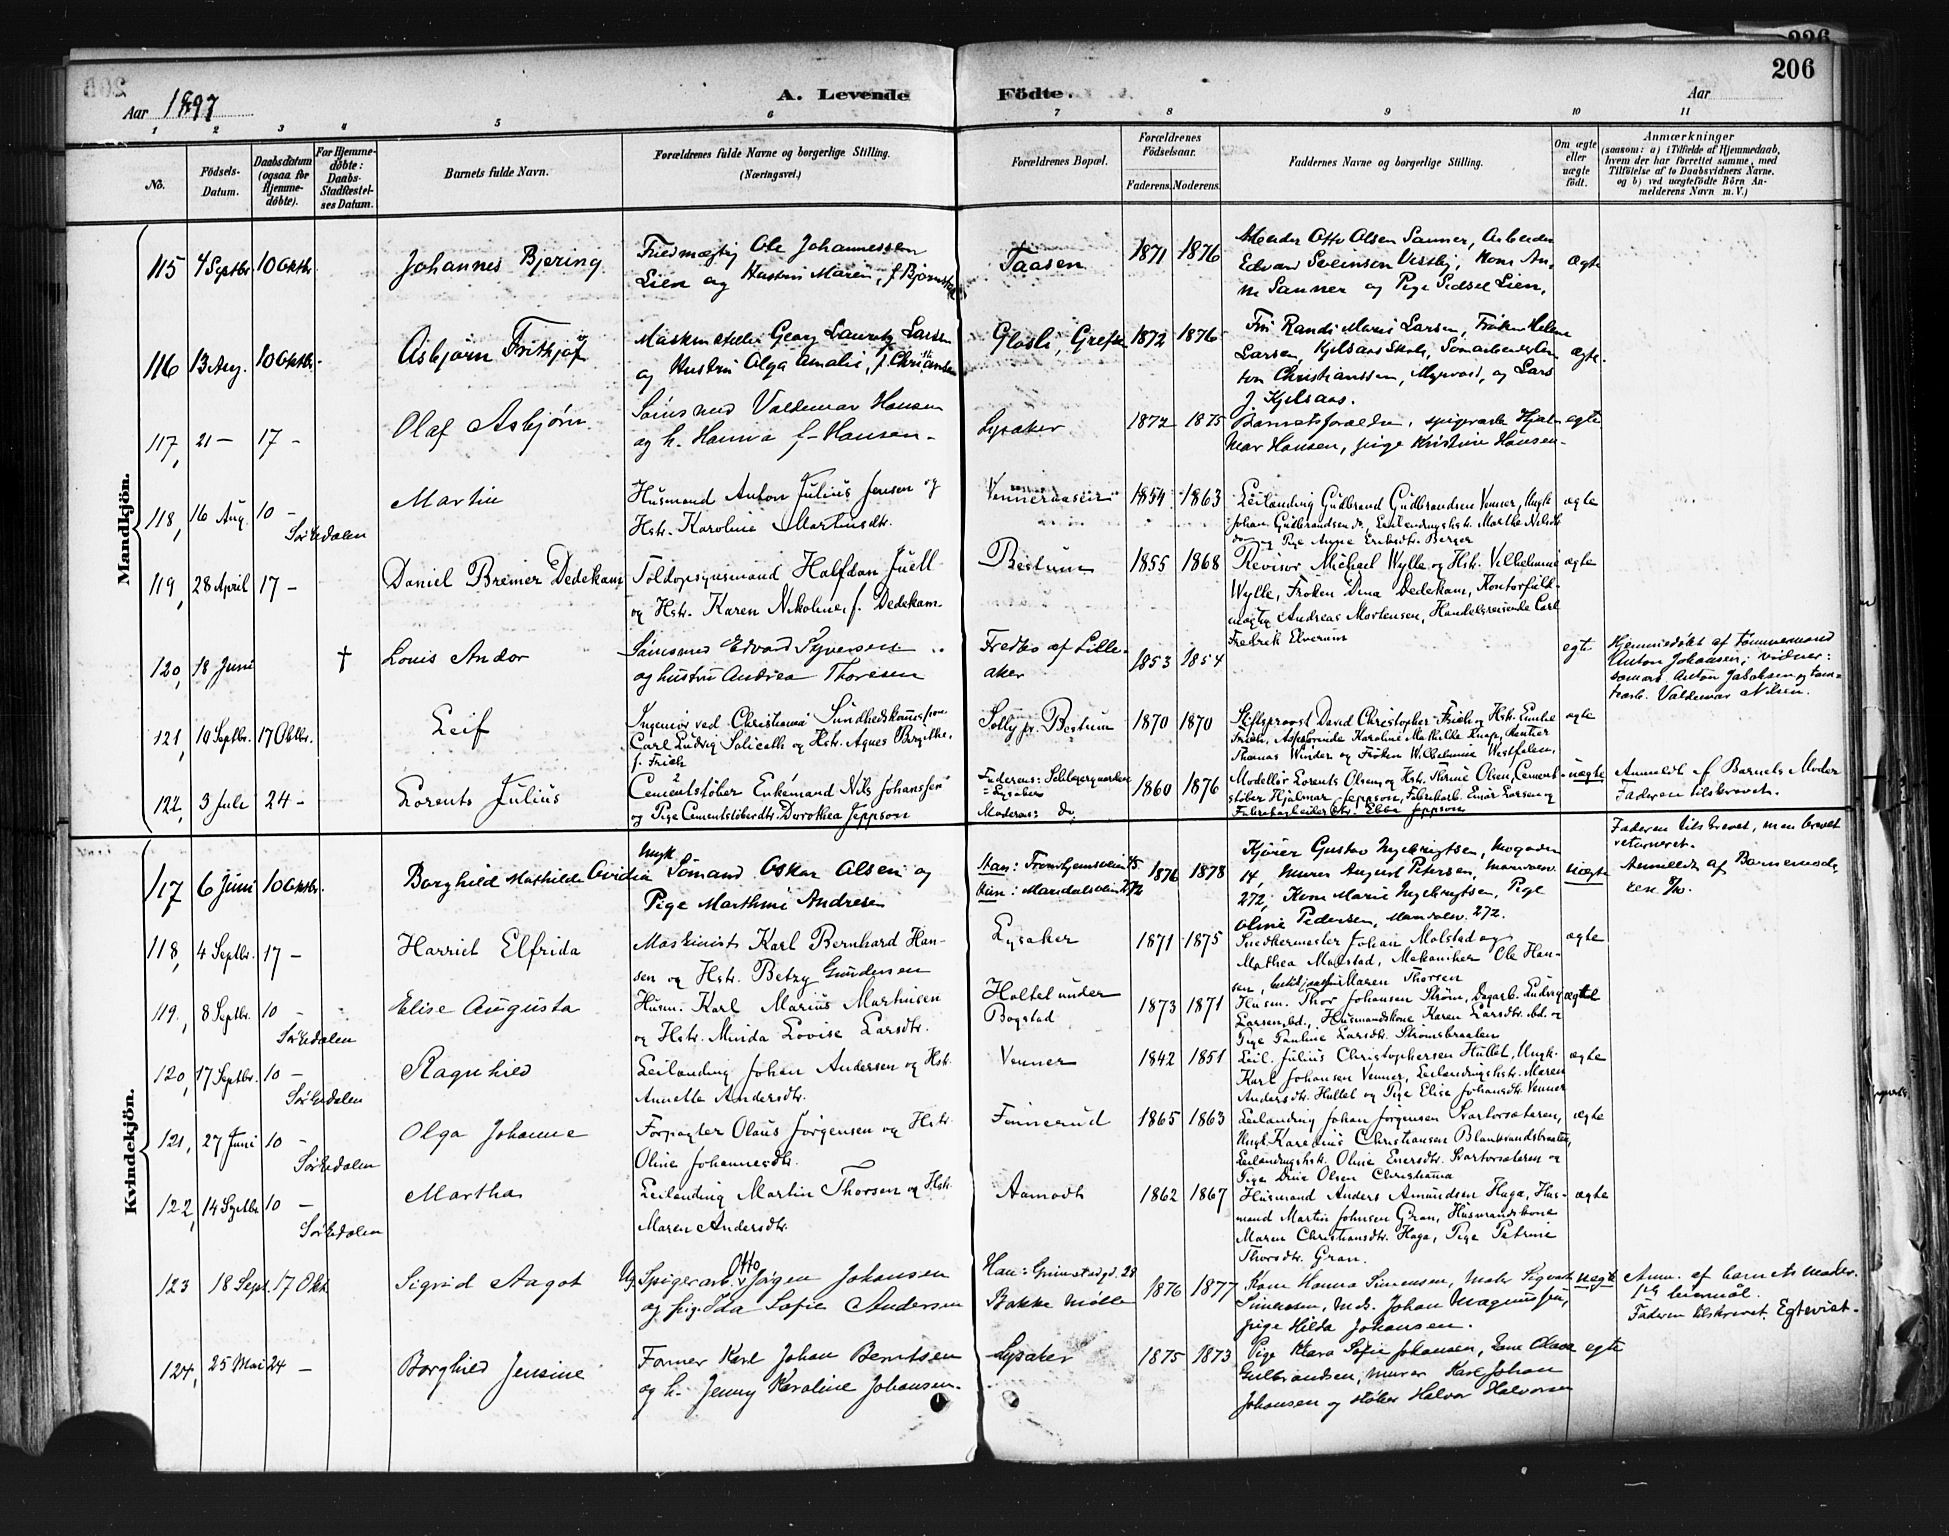 226
206
Aar 1897
A. Levende
Födte.
Aar
1 2 3 4 5 6 7 8 9 10 11
No.
Födsels-
Datum.
Daabsdatum
(ogsaa for
Hjemme-
döbte).
For Hjemme-
döbte:
Daabs-
Stadfæstel-
ses Datum.
Barnets fulde Navn.
Forældrenes fulde Navne og borgerlige Stilling.
(Næringsvei.)
Forældrenes Bopæl.
Forældrenes
Födselsaar.
Faderens. Moderens.
Faddernes Navne og borgerlige Stilling.
Om ægte
eller
uægte
født.
Anmærkninger
(saasom: a) i Tilfælde af Hjemmedaab,
hvem der har forrettet samme, med
Tilføielse af to Daabsvidners Navne.
og b) ved uægtefödte Börn An-
melderens Navn m. V.)
Mandkjön.
115 4 Septbr. 10 Oktbr. Johannes Bjering
Ole Johannessen
Lien og Hustru Maren, f.
Taasen
1871 1876
Otto Olsen Sanner, Arbeider
Edvard Svensen Vestby, Kone An-
ne Sanner og Pige Sidsel Lien,
ægte
116 13 Aug. 10 Oktbr. Asbjørn Frithjof
Georg Lauritz Larsen
og Hustru Olga Amalie, f. Christiansen
Glosli, Grefsen
1872 1876
Frk Randi Marie Larsen, Frøken Helene
Larsen, Kjelsaas Skole,
ton Christianssen, Myrvold, og Lars
J. Kjelsaas.
ægte.
117, 21 - 17 - Olaf Asbjørn
Valdemar Hansen
og h. Hanna f. Hansen.
Lysaker
1872 1875
Barnets forældre, spigerarb. Hjal-
mar Hansen, pige Kristine Hansen.
egte
118, 16 Aug. 10 - Sørkedalen
Martin
Husmand Anton Julius Jensen og
Hstr. Karoline Martinsdtr.
Venneraasen
1854 1863
Leilænding Gudbrand Gudbrandsen Venner, Ungk.
Johan Gudbrandsen do, Leilændingshstr. Marthe Nilsdtr
do og Pige Anne Eriksdtr. Berger
ægte
119, 28 April 17 - Daniel Bremer Dedekam
Toldopsynsmand Halfdan Juell
og Hstr. Karen Nikoline f. Dedekam.
Bestum
1855 1868
Revisor Michael Wylle og Hstr. Vilhelmine
Wylle, Frøken Dina Dedekam, Kontorfuld-
mægtig Andreas Mortensen, Handelsreisende Carl
Fredrik Elverum
ægte
120, 18 Juni † Louis Andor
Edvard Syversen
og hustru Andrea Thoresen
Fredbo af Lille-
aker
1853 1854
egte
Hjemmedøbt af tømmermand
Anton Johansen; vidner:
Anton Jakobsen og
Valdemar Nilsen.
121, 19 Septbr. 17 Oktbr. Leif
Ingeniør ved Christiania Sundhedskommission
Carl Ludvig Solicath og Hstr. Agnes Birgitte,
f. Frich
Solly pr. Bestum
1870 1870
Stiftsprovst David Christopher Frich og Hstr. Emilie
Frich, Karoline Mathilde Knap, Rentier
Thomas Winder og Frøken Wilhelmine Westfalen,
ægte
122, 3 Juli 24 - Lorents Julius
Cementstøber Enkemand Nils Johanssen
og Pige Cementstøberdtr. Dorothea Jeppson
Faderens:
Lysaker
Moderens: do
1860 1876
Modellør Lorents Olsen og Hstr. Thrine Olsen, Cement-
støber Hjalmar Jeppson, Fabrikarb. Einar Larsen og
Fabrikarbeider Hstr. Ebba Jeppson
uægte
Anmeldt af Barnets Moder
Faderen tilskrevet.
Kvindekjön.
117 6 Juni 10 Oktbr. Borghild Mathilde Ovidia
Ungk. Sømand Oskar Olsen og
Pige Marthine Andresen
Han: Trondhjemsveien 45
Hun: Maridalsveien 272
1876 1878
Kjører Gustav Ingebrigtsen,
14, Murer August Petersen, Maridalsv.
272, Kone Marie Ingebrigtsen, Pige
Oline Pedersen, Maridalsv. 272.
Uægte
Faderen tilskrevet, men brevet
returneret.
Anmeldt af Barnemode-
ren
118, 4 Septbr. 17 - Harriet Elfrida
Maskinist Karl Bernhard Han-
sen og Hstr. Betzy Gundersen
Lysaker
1871 1875
Snedkermester Johan Molstad og
Mathea Molstad, Mekaniker Ole Han-
sen, Maren Thorsen
ægte
119, 8 Septbr. 10 - Sørkedalen
Elise Augusta
Husm. Karl Marius Martinsen
og Hstr. Minda Lovise Larsdtr.
Holtet under
Bogstad
1873 1871
Husm. Thor Johansen Strøm, Dagarb. Ludvig
Larsen, bd., Husmandskone Karen Larsdtr. bd. og
Pige Pauline Larsdtr. Strømsbraaten
ægte
120, 17 Septbr. 10 - Sørkedalen
Ragnhild
Leilænding Johan Andersen og Hstr.
Annette Andersdtr.
Venner
1842 1851
Leil. Julius Christophersen Hullet, Ungk.
Karl Johansen Venner, Leilændingshstr. Maren
Andersdtr. Hullet og Pige Elise Johansdtr. Venner
ægte
121, 27 Juni 10 - Sørkedalen
Olga Johanne
Forpagter Olaus Jørgensen og Hstr.
Oline Johannesdtr.
Finnerud
1865 1863
Leilænding Johan Jørgensen Svartorsæteren,
Ungk. Karenius Christiansen Blanksandsbraaten,
Leilændingshstr. Oline Enersdtr. Svartorsæteren og
Pige Drine Olsen Christiania
ægte
122, 14 Septbr 10 - Sørkedalen
Martha
Leilænding Martin Thorsen og Hstr.
Maren Andersdtr.
Aamodt
1862 1867
Husmand Anders Amundsen Haga, Hus-
mand Martin Johnsen Gran, Husmandskone
Maren Christiansdtr. Haga, Pige Petrine
Thorsdtr. Gran.
ægte
123 18 Sept. 17 Okt. Sigrid Aagot
Ug. Spigerarb. Otto Jørgen Johansen
og pige Ida Sofie Andersen
Han: Grimstadgd. 28
Bakke Mølle
1876 1877
Kone Hanna Simensen, Maler Sigvart
Simensen, Johan Magnussen,
pige Hilda Johansen.
uegte
Anm. af barnets moder.
1ste leiermål.
Faderen tilskrevet. Egtevist.
124, 25 Mai 24 - Borghild Jensine
Former Karl Johan Berntsen
og h. Jenny Karoline Johansen.
Lysaker
1875 1873
Pige Klara Sofie Johansen, Olava
Gulbrandsen, murer Karl Johan
Johansen og støber Halvor Halvorsen
egte